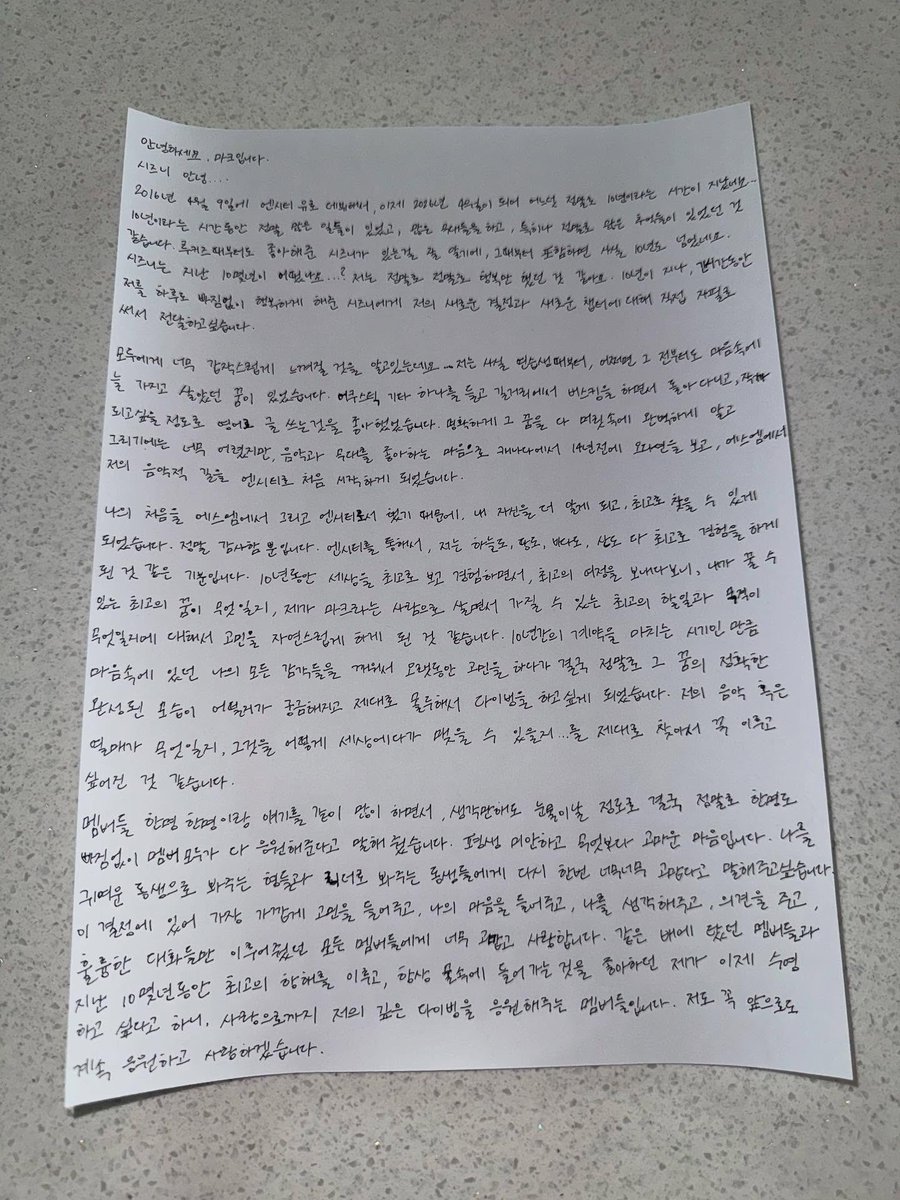 안녕하세요, 마크입니다.
시즈니 안녕....
2016년 4월 9일에 엔시티 유로 데뷔해서, 이제 2026년 4월이 되어 어느덧 정말로 10년이라는 시간이 지났네요...
10년이라는 시간동안 정말 많은 일들이 있었고, 많은 하고, 특히나 정말로 많은 추억들이 있었던 것
같습니다. 루키즈 때부터도 좋아해준 시즈니가 있는걸 잘 알기에, 그때부터 포함하면 사실 10년도 넘었네요.
시즈니는 지난 10몇년이 어땠나요...? 저는 정말로 정말로 행복만 했던 것 같아요. 10년이 지나, 긴시간동안
저를 하루도 빠짐없이 행복하게 해준 시즈니에게 저의 새로운 결정과 새로운 챕터에 대해 직접 자필로
써서 전달하고싶습니다.
모두에게 너무 갑작스럽게 느껴질 것을 알고있는데요... 저는 사실 연습생때부터, 어쩌면 그 전부터도 마음속에
늘 가지고 살았던 꿈이 있었습니다. 어쿠스틱 기타 하나를 들고 길거리에서 버스킹을 하면서 돌아 다니고, 작가
되고싶을 정도로 영어로 글 쓰는것을 좋아했었습니다. 명확하게 그 꿈을 다 머릿속에 완벽하게 알고
그리기에는 너무 어렸지만, 음악과 무대를 좋아하는 마음으로 캐나다에서 14년전에 오디션을 보고, 에스엠에서
저의 음악적 길을 엔시티로 처음 시작하게 되었습니다.
나의 처음을 에스엠에서 그리고 엔시티로서 했기 때문에, 내 자신을 더 알게 되고, 최고로 찾을 수 있게
되었습니다. 정말 감사함 뿐입니다. 엔시티를 통해서, 저는 하늘도, 땅도, 바다도, 산도 다 최고로 경험을 하게
된 것 같은 기분입니다. 10년동안 세상을 최고로 보고 경험하면서, 최고의 여정을 보내다보니, 내가 꿀 수
있는 최고의 꿈이 무엇일지, 제가 마크라는 사람으로 살면서 가질 수 있는 최고의 할일과 목적이
무엇일지에 대해서 고민을 자연스럽게 하게 된 것 같습니다. 10년간의 계약을 마치는 시기인 만큼
마음속에 있던 나의 모든 감각들을 깨워서 오랫동안 고민을 하다가 결국 정말로 그 꿈의 정확한
완성된 모습이 어떨지가 궁금해지고 제대로 몰두해서 다이빙을 하고싶게 되었습니다. 저의 음악 혹은
열매가 무엇일지, 그것을 어떻게 세상에다가 맺을 수 있을지...를 제대로 찾아서 꼭 이루고
싶어진 것 같습니다.
멤버들 한명 한명이랑 얘기를 같이 많이 하면서, 생각만해도 눈물이날 정도로 결국 정말로 한명도
빠짐없이 멤버모두가 다 응원해준다고 말해 줬습니다. 평생 미안하고 무엇보다 고마운 마음입니다. 나를
귀여운 동생으로 봐주는 형들과 리더로 봐주는 동생들에게 다시 한번 너무너무 고맙다고 말해주고싶습니다.
이 결정에 있어 가장 가깝게 고민을 들어주고, 나의 마음을 들어주고, 나를 생각해주고, 의견을 주고,
훌륭한 대화들만 이루어줬던 모든 멤버들에게 너무 고맙고 사랑합니다. 같은 배에 탔던 멤버들과
지난 10몇년동안 최고의 항해를 이루고, 항상 물속에 들어가는 것을 좋아하던 제가 이제 수영
하고 싶다고 하니, 사랑으로까지 저의 깊은 다이빙을 응원해주는 멤버들입니다. 저도 꼭 앞으로도
계속 응원하고 사랑하겠습니다.